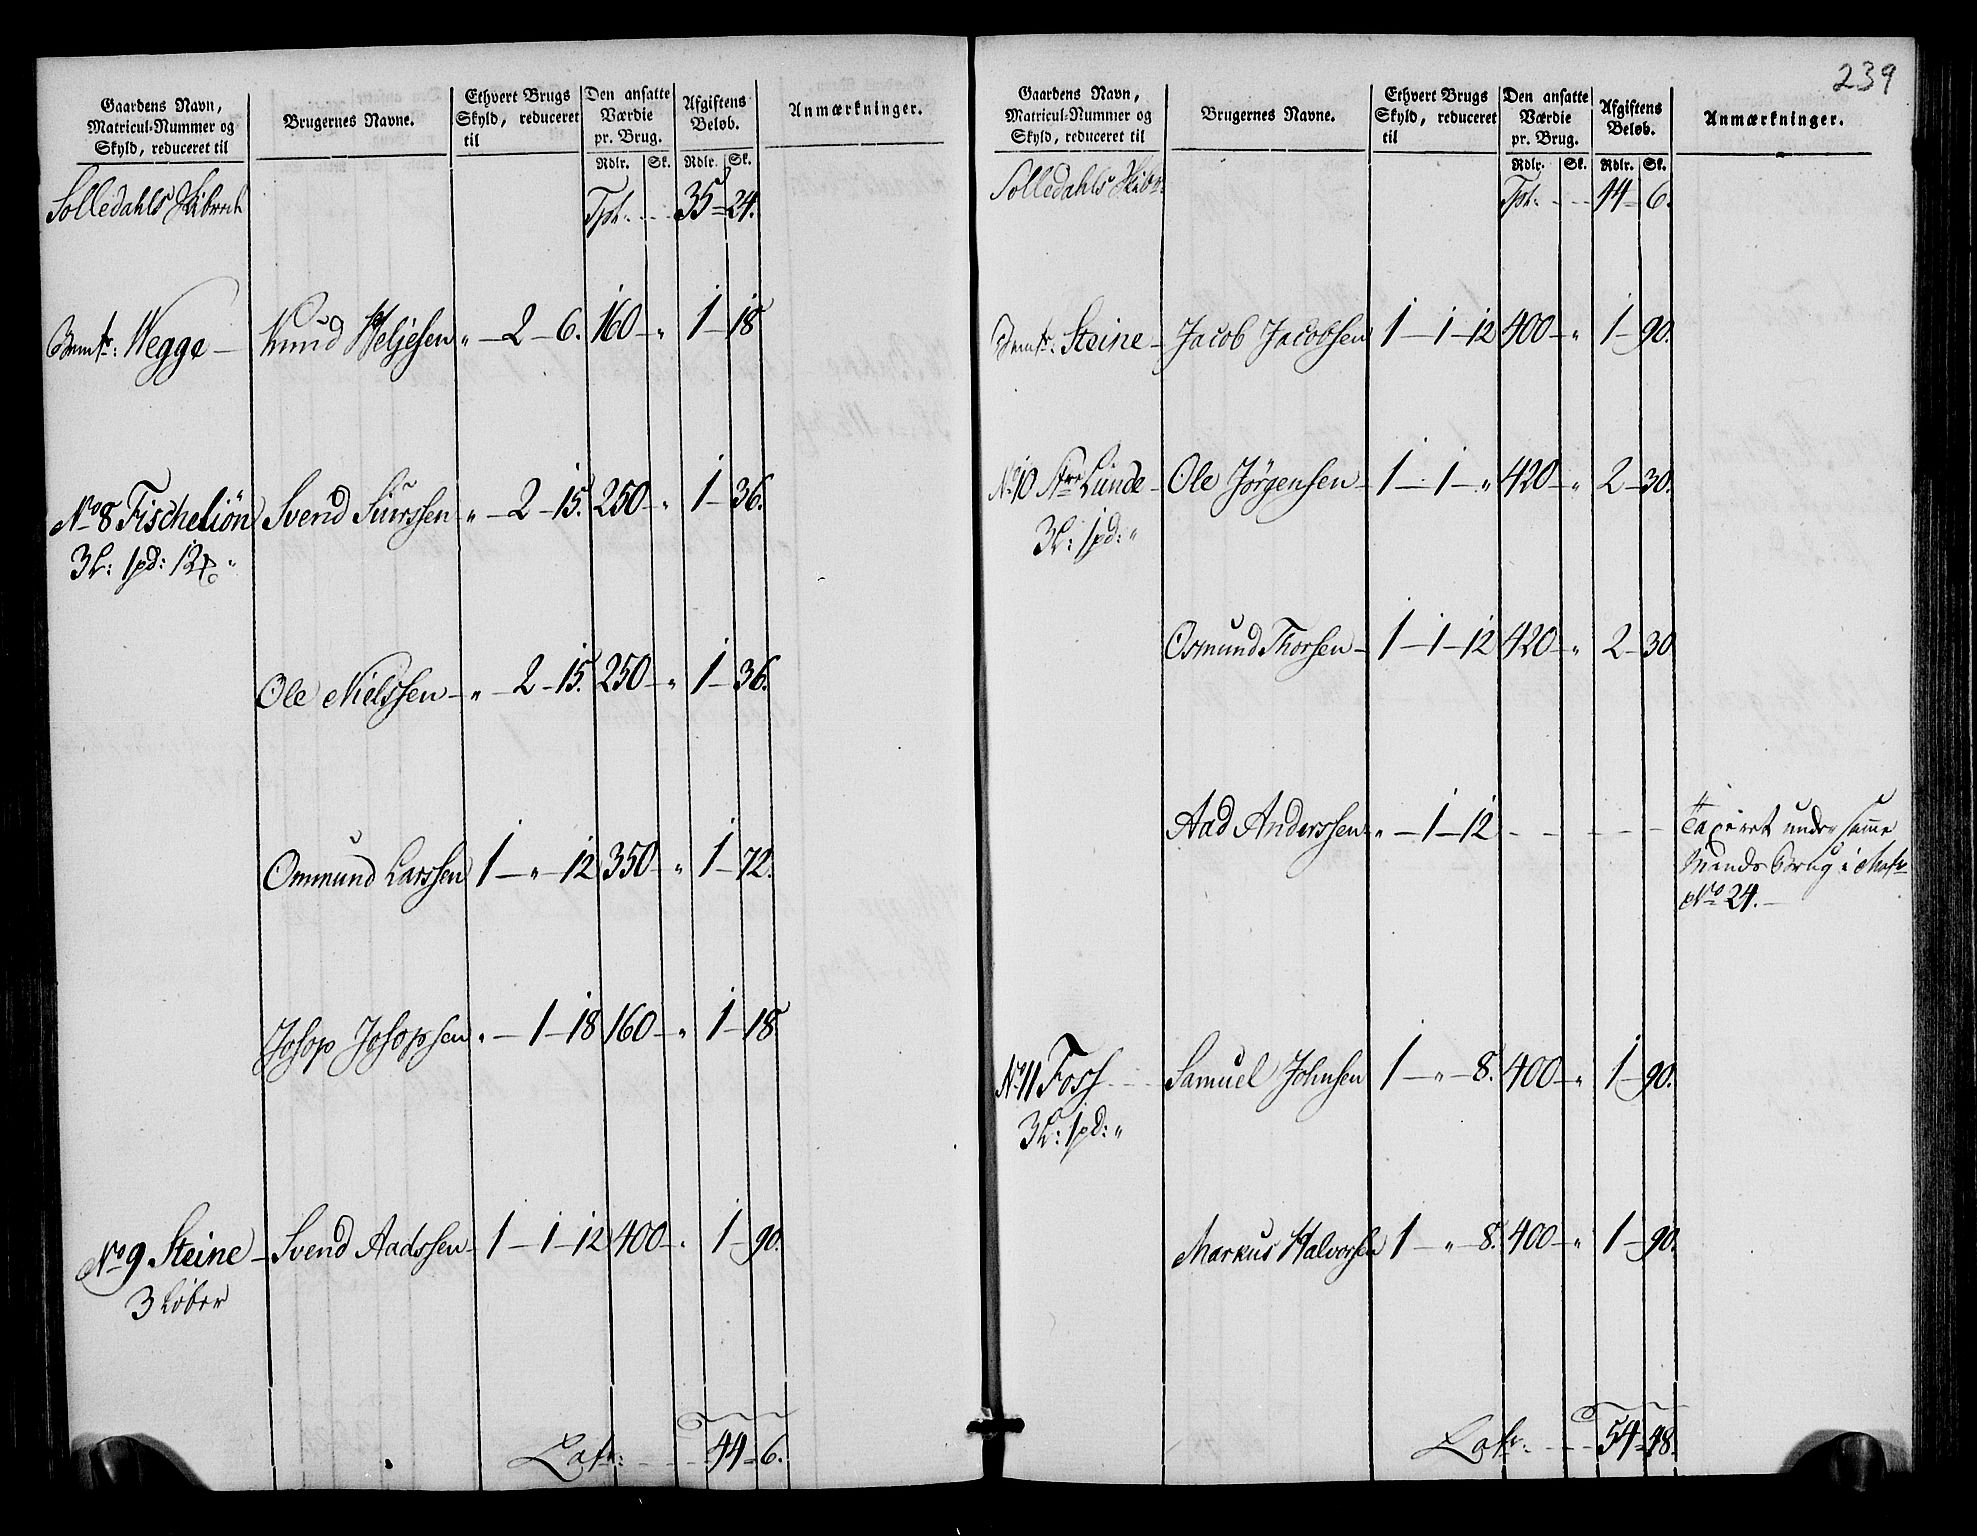 Gaardens Navn, Matricul-Nummer og Skyld, reduceret til | Brugernes Navne. | Ethvert Brugs Skyld, reduceret til | Den ansatte Værdie pr. Brug. | Afgiftens Beløb. | Anmærkninger.
Rdlr. Sk. Rdlr. Sk.
Solledahls Skibred Tpt: 35 24.
Wegge Knud Heljesen " 2 6. 160 " 1 18
No 8 Fischeliön Svend Siurssen " 2 15. 250 " 1 36.
3 L: 1 pd: 12
Ole Nielssen " 2 15. 250 " 1 36.
Ommund Larssen 1 " 12 350 " 1 72.
Josop Josopsen " 1 18 160 " 1 18
No 9. Steine Svend Aadssen 1 1 12 400 " 1 90.
3 Løber
Latr: 44 6.
239
Gaardens Navn, Matricul-Nummer og Skyld, reduceret til | Brugernes Navne. | Ethvert Brugs Skyld, reduceret til | Den ansatte Værdie pr. Brug. | Afgiftens Beløb. | Anmærkninger.
Rdlr. Sk. Rdlr. Sk.
Solledahls Skibr: Tpt: 44 6.
Steine Jacob Jacobsen 1 1 12 400 " 1 90.
No 10 Lunde Ole Jørgensen 1 1 " 420 " 2 30.
3 L: 1 pd: "
Osmund Thorsen 1 1 12 420 " 2 30
Aad Anderssen " 1 12
Taxeret under samme
Mands Brug i Matr
No 24.
No 11 Foss Samuel Johnsen 1 " 8. 400 " 1 90.
3 L: 1 pd: "
Markus Halvorsen 1 " 8. 400 " 1 90.
Latr: 54 48.